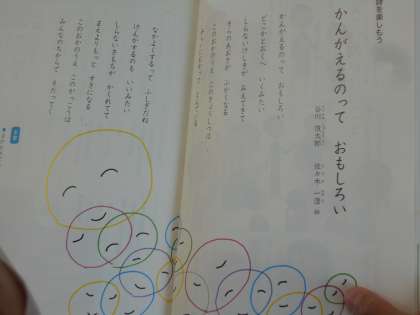 詩を楽しもう
かんがえるのって おもしろい
谷川 俊太郎
佐々木 一澄 絵
かんがえるのって おもしろい
どこかとおくへ いくみたい
しらないけしきが みえてきて
そらのあおさが ふかくなる
このおかのうえ このきょうしつは
なかよくするって ふしぎだね
けんかするのも いいみたい
しらないきもちが かくれてて
まえよりもっと すきになる
このおかのうえ このがっこうは
みんなのちからで そだってく